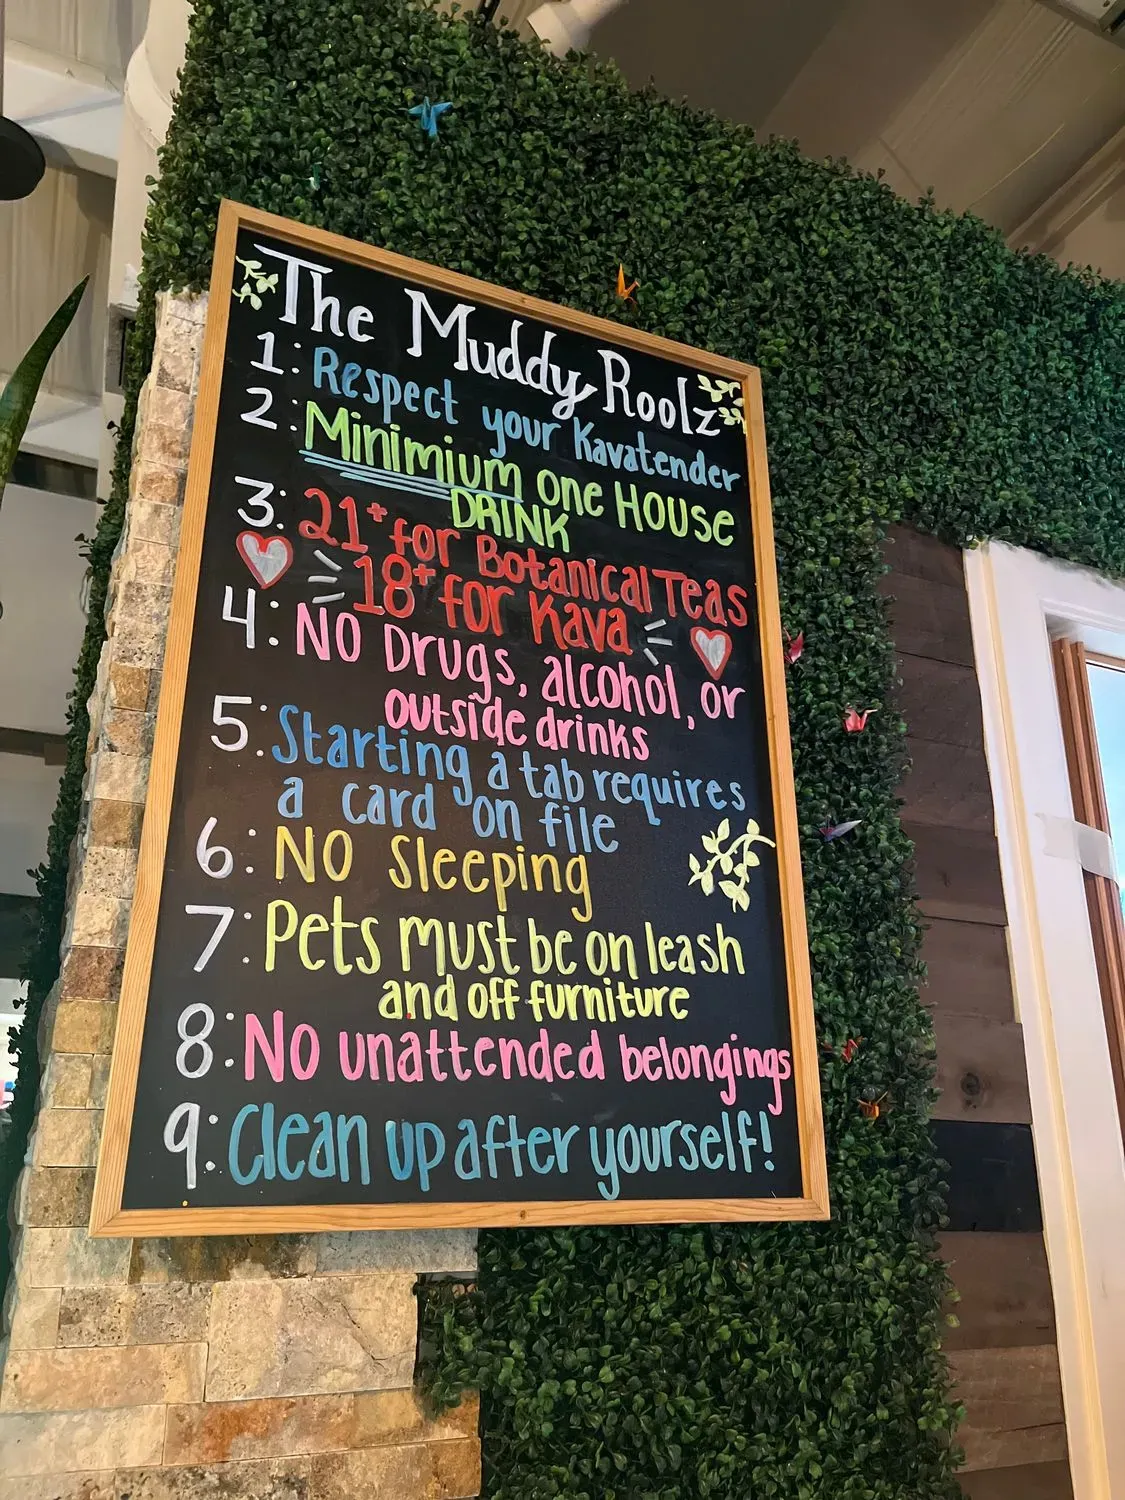 The Muddy Roolz
1: Respect your Kavatender
2: Minimium one House
DRINK
3: 21+ for Botanical Teas
18+ for Kava
4: NO Drugs, alcohol, or
outside drinks
5: Starting a tab requires
a card on file
6: NO Sleeping
7: Pets must be on leash
and off furniture
8: NO unattended belongings
9: Clean up after yourself!